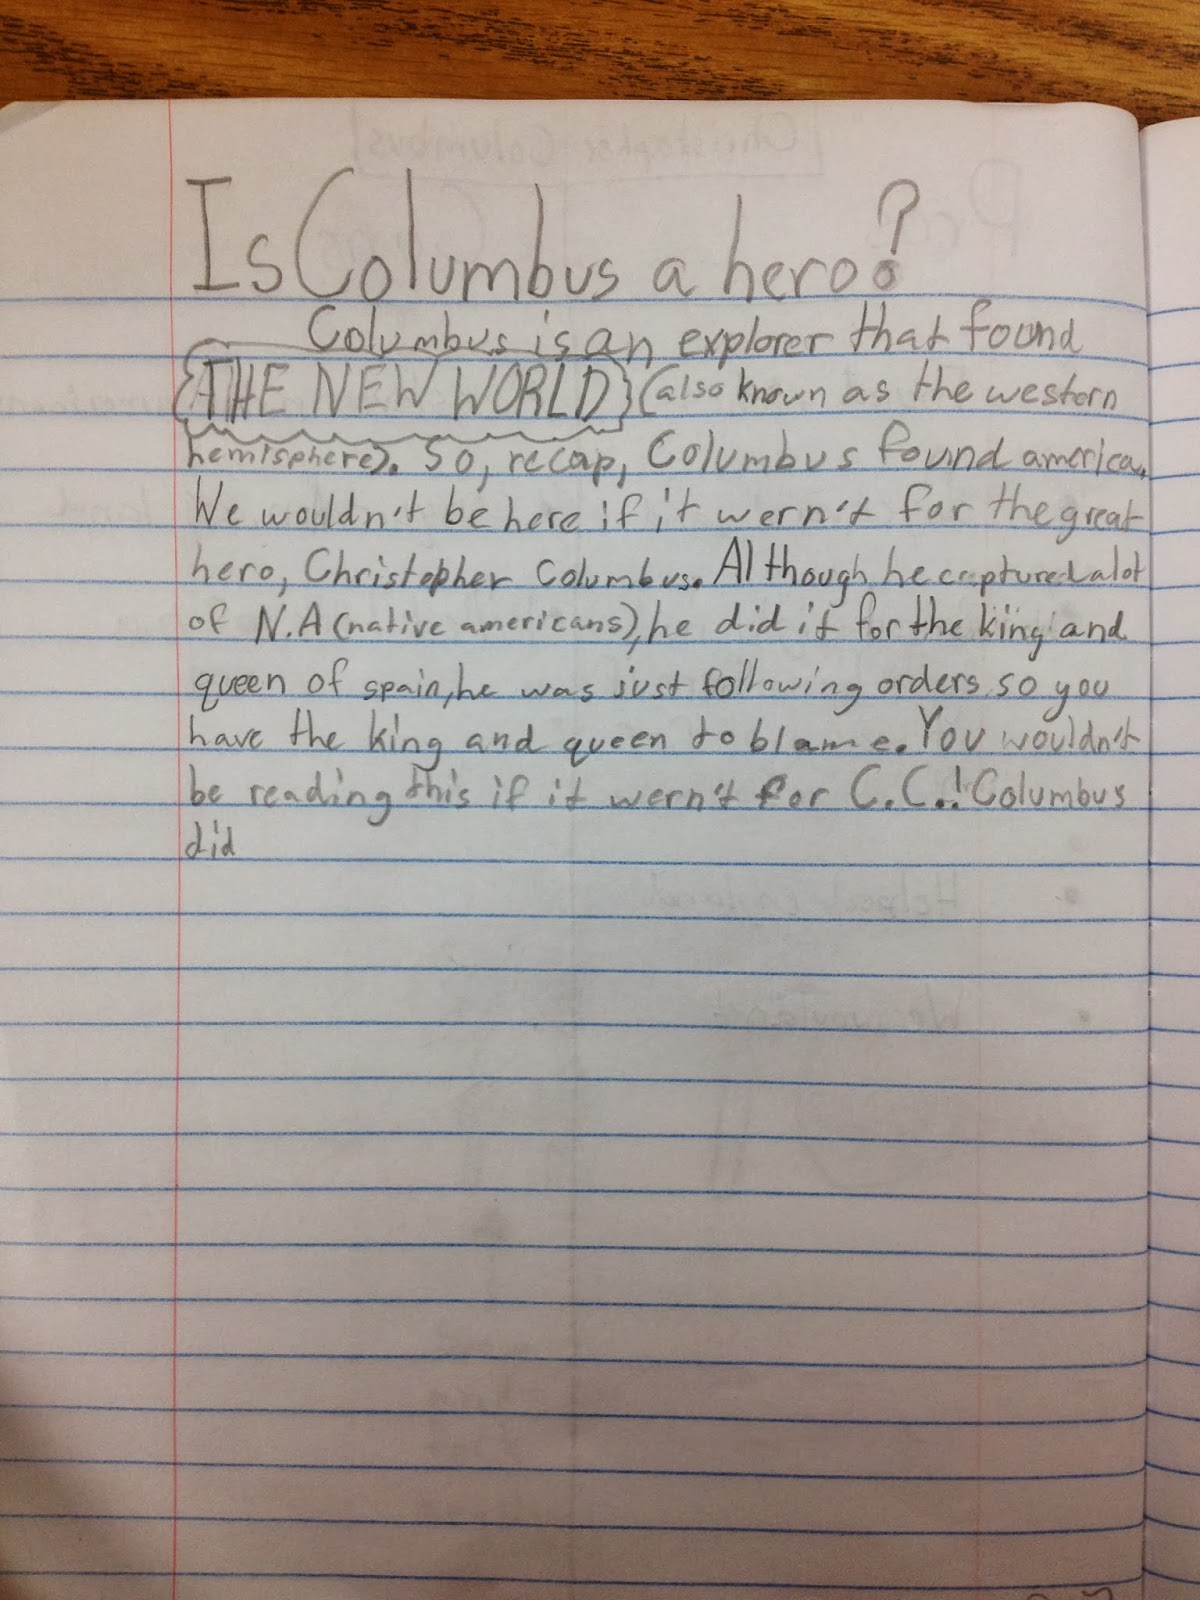 Is Columbus a hero?
Columbus is an explorer that found
THE NEW WORLD (also known as the western
hemisphere). So, recap, Columbus found america.
We wouldn't be here if it wern't for the great
hero, Christopher Columbus. Although he captured alot
of N.A (native americans), he did it for the king and
queen of spain, he was just following orders so you
have the king and queen to blame. You wouldn't
be reading this if it wern't for C.C.! Columbus
did